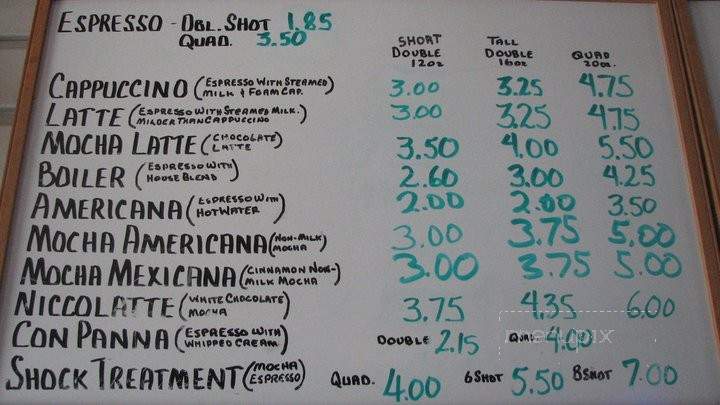 ESPRESSO - DBL. SHOT 1.85
QUAD. 3.50
SHORT DOUBLE 12oz TALL DOUBLE 16oz QUAD 20oz.
CAPPUCCINO (ESPRESSO WITH STEAMED MILK & FOAM CAP.) 3.00 3.25 4.75
LATTE (ESPRESSO WITH STEAMED MILK. MILDER THAN CAPPUCCINO) 3.00 3.25 4.75
MOCHA LATTE (CHOCOLATE LATTE) 3.50 4.00 5.50
BOILER (ESPRESSO WITH HOUSE BLEND) 2.60 3.00 4.25
AMERICANA (ESPRESSO WITH HOT WATER) 2.00 2.00 3.50
MOCHA AMERICANA (NON-MILK MOCHA) 3.00 3.75 5.00
MOCHA MEXICANA (CINNAMON NON-MILK MOCHA) 3.00 3.75 5.00
NICCOLATTE (WHITE CHOCOLATE MOCHA) 3.75 4.35 6.00
CON PANNA (ESPRESSO WITH WHIPPED CREAM) DOUBLE 2.15 QUAD 4.00
SHOCK TREATMENT (MOCHA ESPRESSO) QUAD. 4.00 6 SHOT 5.50 8 SHOT 7.00
menupix